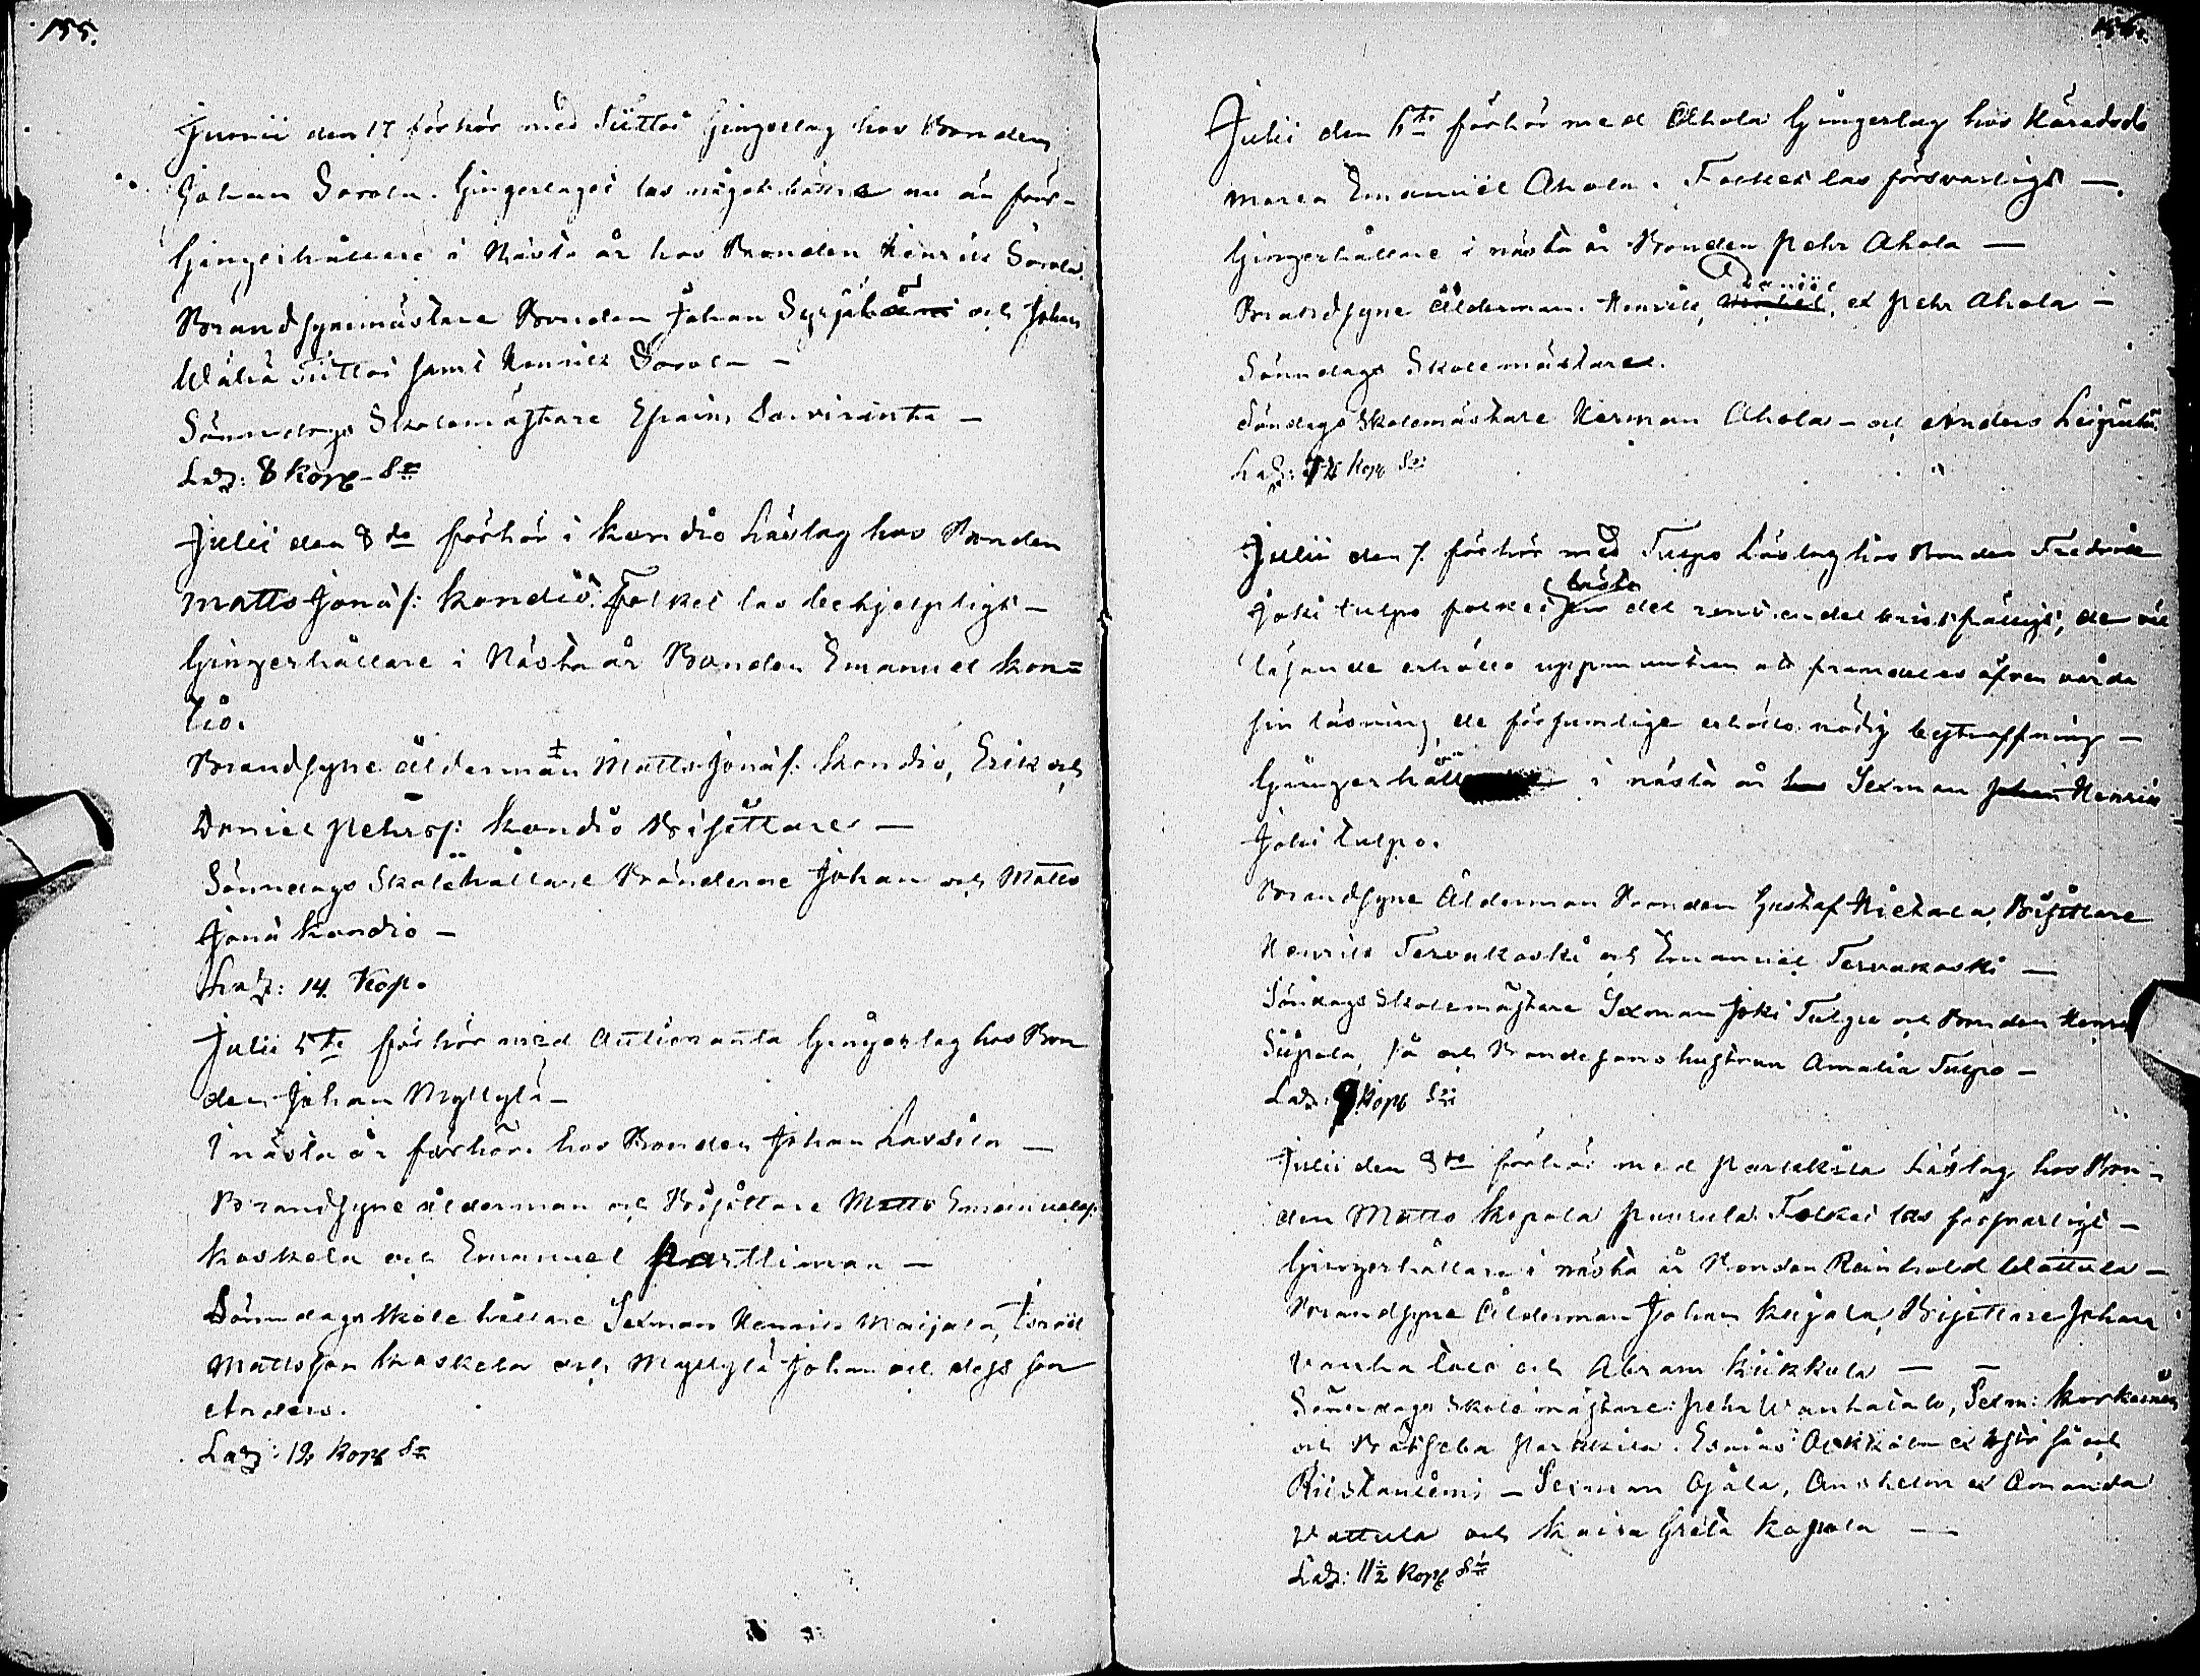 155.
Junii den 17 förhör med Tiittoi Gingerlag hos Bonden
Johan Sorola. Gingerlaget las något bättre nu än förr-
Gingerhållare i Nästa år hos Bonden Henrik Sorola.
Brandsynemästare Bonden Johan Syrjähämi och Johan
Wäliä Tiittoi samt Henrik Sorola -
Sönndags Skolemästare Efraim Savirinta -
Laz: 8 Kopp Srr
Julii den 8de förhör i Kondio Läslag hos Bonden
Matts Jonäs: Kondio. Folket las behjelpligt -
Gingerhållare i Nästa år Bonden Emanuel Kon=
tio.
Brandsyne ålderman Matts Jonäs: Kondio, Erik och
Daniel Pehrss: Kondio Bisittare -
Sönndags Skolehållare Bönderne Johan och Matts
Jonä Kondio -
Laz: 14. Kop.
Julii 5te förhör med Autioranta Gingerlag hos Bon
den Johan Myllylä -
I nästa år förhör hos Bonden Johan Lassila -
Brandsyne ålderman och Bisittare Matts Emanuelss:
Koskela och Emanuel Parttiman -
Sönndags Skole hållare Sexman Henrik Maijala, Israël
Mattsson Kaskela och Myllylä Johan och dess son
Anders.
Laz: 12 Kopp Sr
156.
Julii den 6te förhör med Ahola Gingerlag hos Häradsdo
maren Emanuel Ahola. Folket las försvarligt -
Gingerhållare i nästa år Bonden Pehr Ahola -
Daniel
Brandsyne Ålderman Henrik, et Pehr Ahola -
Sönndags Skolemästare.
Söndags Skolemästare Herman Ahola - och Anders
Laz: Kopp Sr
Julii den 7. förhör med Tulpo Läslag hos Bonden Fredrik
läste
Joki Tulpo folket en del rent en del bristfälligt, de väl
läsande erhöllo uppmuntran att framdeles äfven vårda
sin läsning, de försumlige erhöllo nödig bestraffning -
Gingerhåll i nästa år hos Sexman Johan Henrik
Joki Tulpo.
Brandsyne Ålderman Bonden Gustaf Hietala, Bisittare
Henrik Tervakoski och Emanuel Tervakoski -
Söndags Skolemästare Sexman Joki Tulpo och Bonden Henrik
Siipola, så och Bondesons hustrun Amalia Tulpo -
Laz: 9 Kopp Sr
Julii den 8de förhör med Parkkila Läslag hos Bon-
den Matts Kopala Puurula. Folket las försvarligt -
Gingerhållare i nästa år Bonden Reinhold Wattula -
Brandsyne Ålderman Johan Kujala, Bisittare Johan
Vanha talo och Abram Kukkola -
Sönndags Skolemästare: Pehr Wanhatalo, Sexm: Korkeaniemi
och Parkkila. Esaias så och
Riistaniemi - Sexman Ojala, Anshelm et Amanda
Wattula och Kaisa Greta Kopala -
Laz: 11½ Kopp Sr